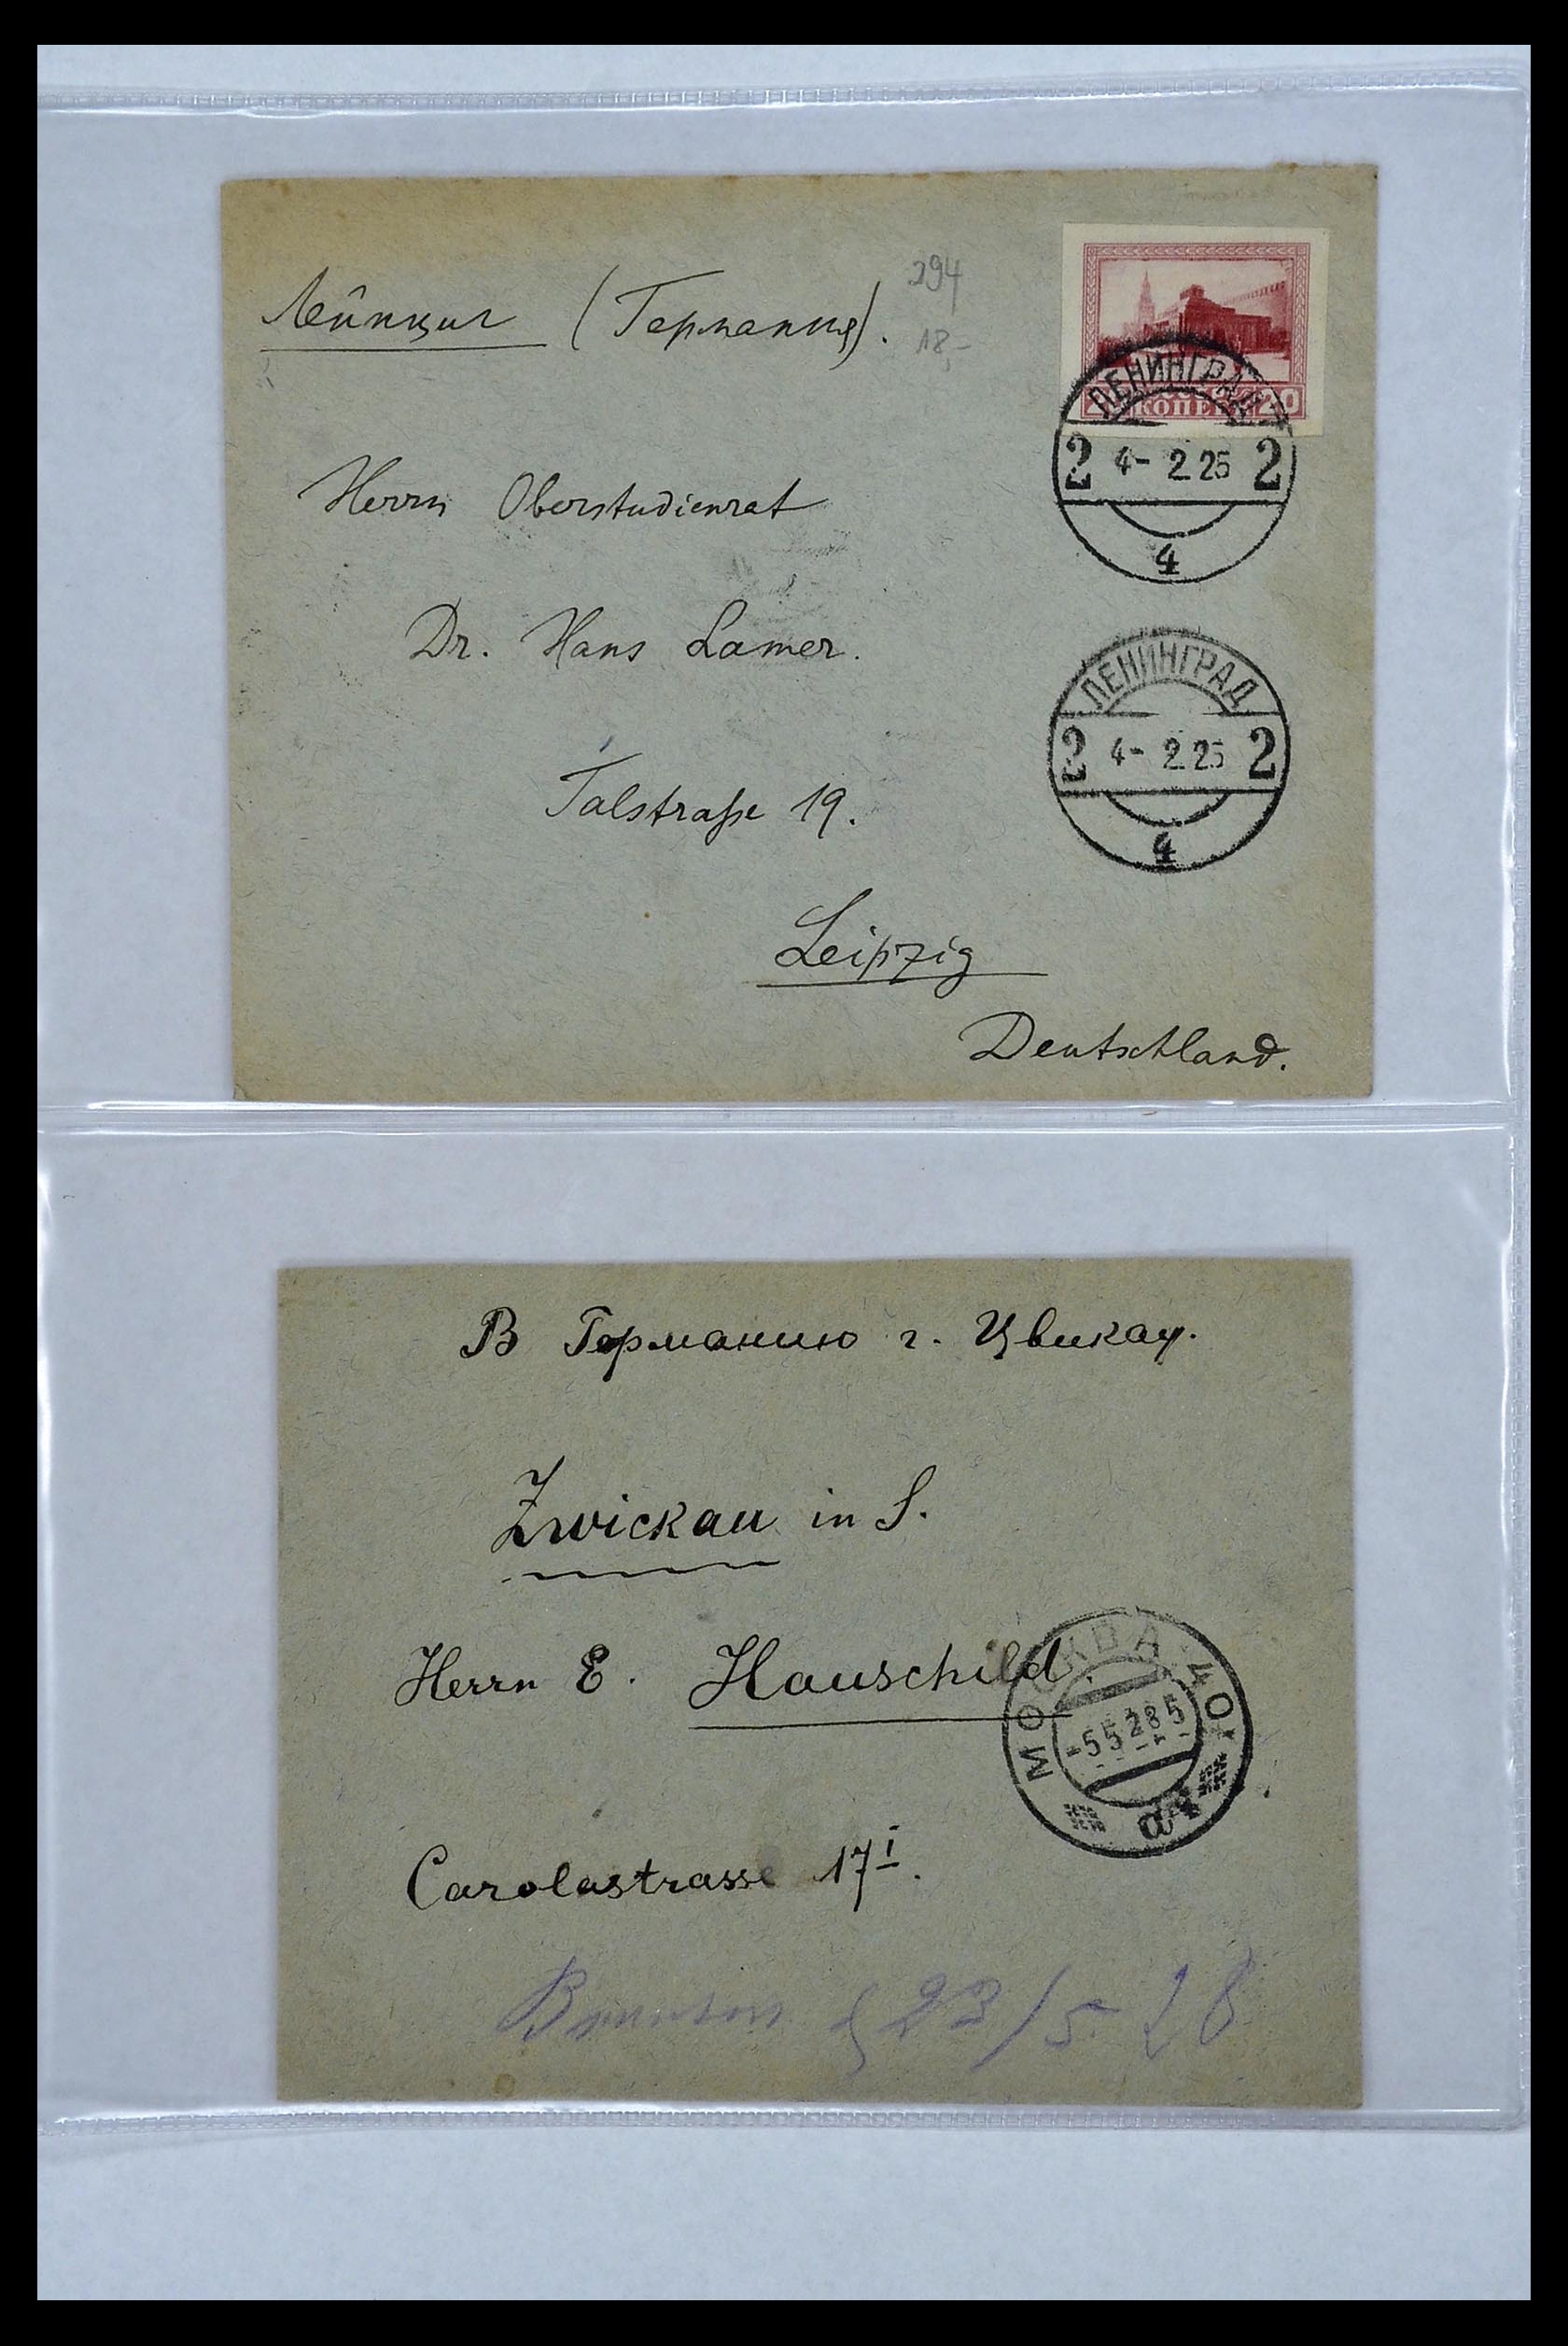 Лейпциг (Германия).
294
18,-
20 КОПЕЕК 20
ЛЕНИНГРАД
2 4- 2 25 2
4
Herrn Oberstudienrat
Dr. Hans Lamer.
ЛЕНИНГРАД
2 4- 2 25 2
4
Talstraße 19.
Leipzig
Deutschland.
В Германию г. Цвикау.
Zwickau in S.
Herrn E. Hauschild.
МОСКВА 40
-5 5 28 5
Carolastrasse 17 I.
23/5 28